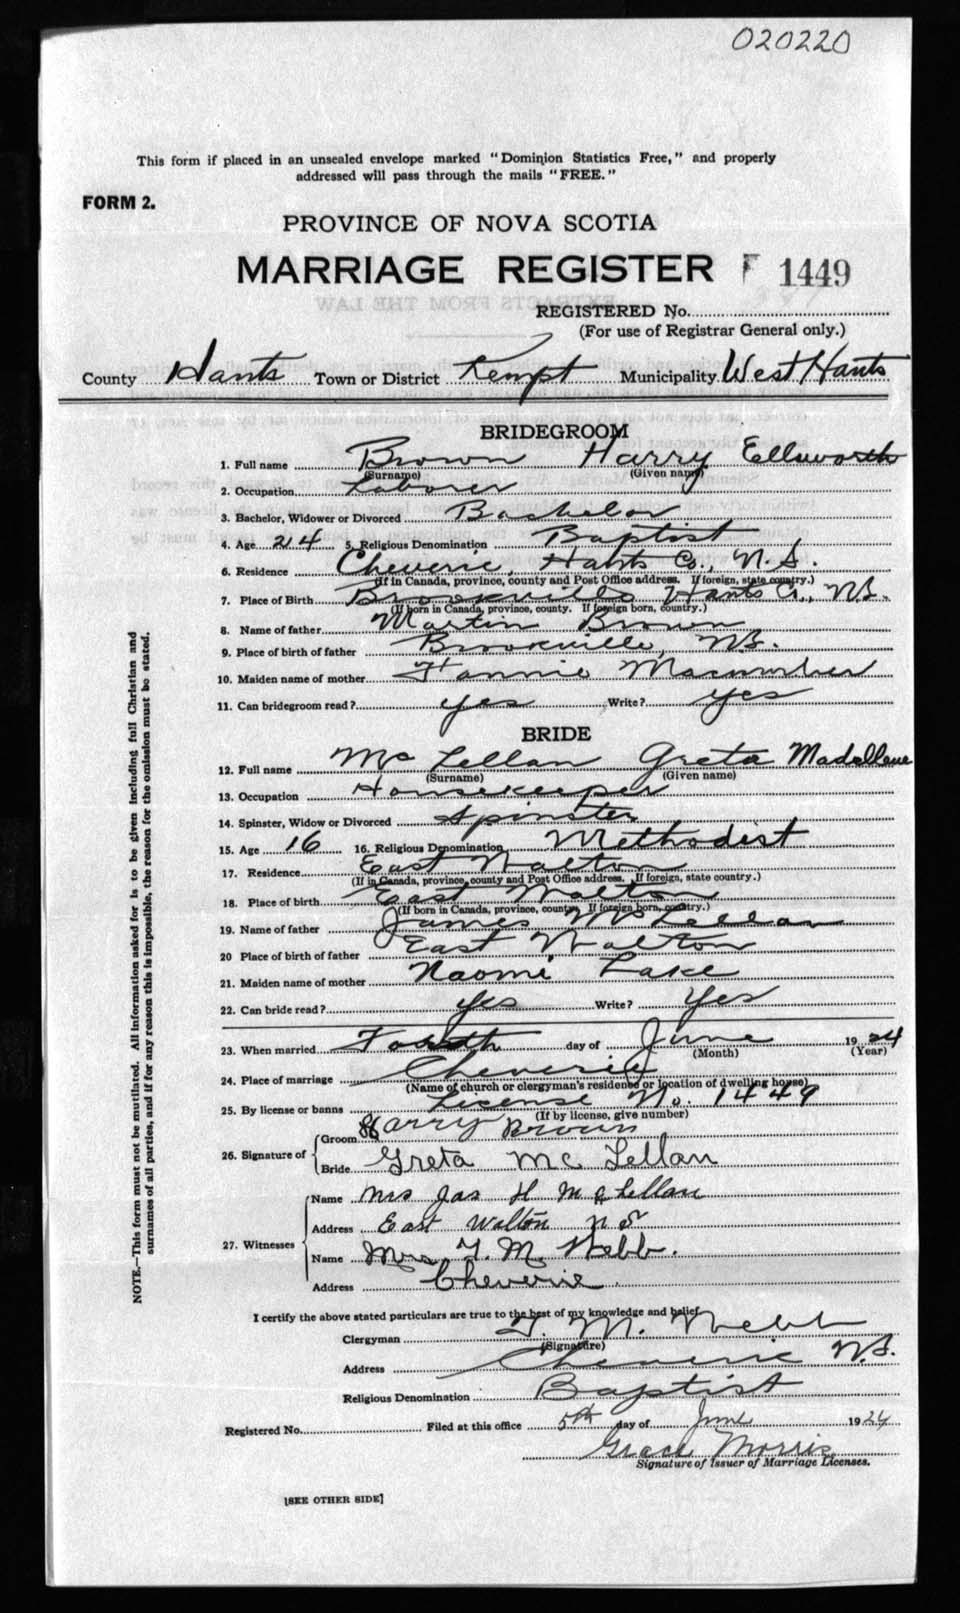 020220
This form if placed in an unsealed envelope marked "Dominion Statistics Free," and properly
addressed will pass through the mails "FREE."
FORM 2.
PROVINCE OF NOVA SCOTIA
MARRIAGE REGISTER F 1449
REGISTERED No.
(For use of Registrar General only.)
County Hants Town or District Kempt Municipality West Hants
BRIDEGROOM
1. Full name Brown Harry Ellsworth
(Surname) (Given name)
2. Occupation Laborer
3. Bachelor, Widower or Divorced Bachelor
4. Age 24 5. Religious Denomination Baptist
6. Residence Cheverie, Hants Co., N.S.
(If in Canada, province, county and Post Office address. If foreign, state country.)
7. Place of Birth Brookville Hants Co., N.S.
(If born in Canada, province, county. If foreign born, country.)
8. Name of father Martin Brown
9. Place of birth of father Brookville, N.S.
10. Maiden name of mother Fannie Macumber
11. Can bridegroom read? yes Write? yes
BRIDE
12. Full name McLellan Greta Madellene
(Surname) (Given name)
13. Occupation Housekeeper
14. Spinster, Widow or Divorced Spinster
15. Age 16 16. Religious Denomination Methodist
17. Residence East Walton
(If in Canada, province, county and Post Office address. If foreign, state country.)
18. Place of birth East Walton
(If born in Canada, province, county. If foreign born, country.)
19. Name of father James McLellan
20 Place of birth of father East Walton
21. Maiden name of mother Naomi Lake
22. Can bride read? yes Write? yes
23. When married Fourth day of June 1924
(Month) (Year)
24. Place of marriage Cheverie
(Name of church or clergyman's residence or location of dwelling house)
25. By license or banns License No. 1449
(If by license, give number)
26. Signature of Groom Harry Brown
Bride Greta McLellan
27. Witnesses Name Mrs Jas H McLellan
Address East Walton N S
Name Mrs. T. M. Webb.
Address Cheverie
I certify the above stated particulars are true to the best of my knowledge and belief
Clergyman T. M. Webb
(Signature)
Address Cheverie N.S.
Religious Denomination Baptist
Registered No. Filed at this office 5th day of June 1924
Grace Morris
Signature of Issuer of Marriage Licenses.
[SEE OTHER SIDE]
NOTE.—This form must not be mutilated. All information asked for is to be given including full Christian and
surnames of all parties, and if for any reason this is impossible, the reason for the omission must be stated.